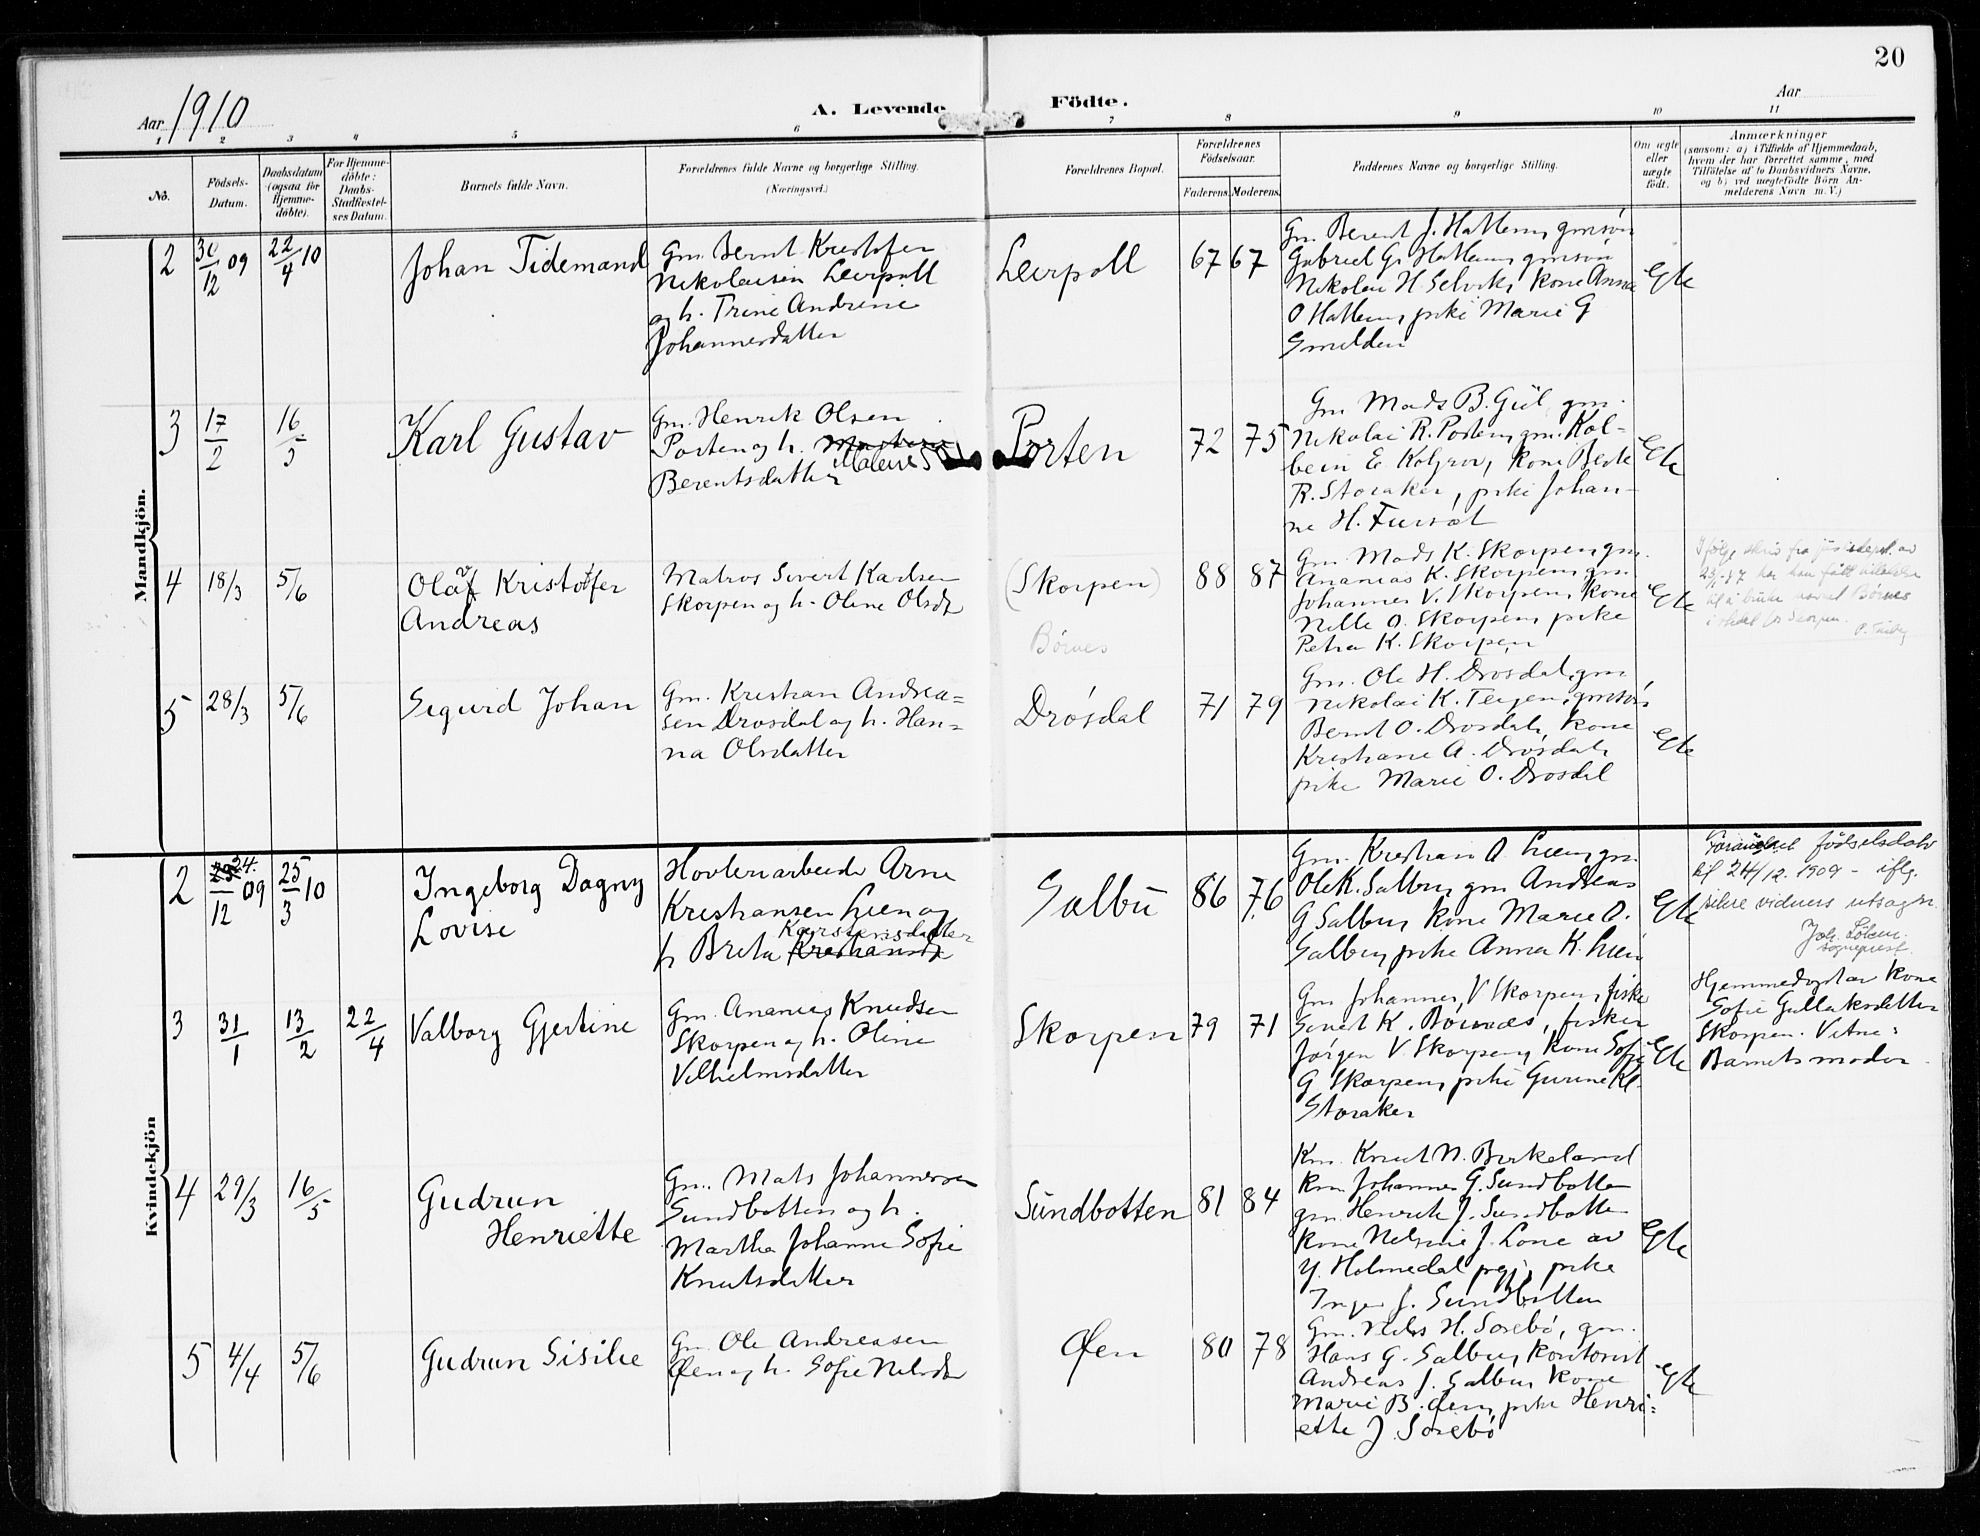 20
Aar 1910
A. Levende Födte.
Aar
1 2 3 4 5 6 7 8 9 10 11
No.
Födsels-Datum.
Daabsdatum (ogsaa for Hjemme-döbte).
For Hjemme-döbte: Daabs-Stadfæstel-ses Datum.
Barnets fulde Navn.
Forældrenes fulde Navne og borgerlige Stilling.
(Næringsvei.)
Forældrenes Bopæl.
Forældrenes Födselsaar.
Faderens. Moderens.
Faddernes Navne og borgerlige Stilling.
Om ægte eller uægte födt.
Anmærkninger
(saasom: a) i Tilfælde af Hjemmedaab,
hvem der har forrettet samme, med
Tilföielse af to Daabsvidners Navne,
og b) ved uægtefödte Börn An-
melderens Navn m. V.)
Mandkjön.
2 30/12 09 22/4 10
Johan Tidemand
Gm. Bernt Kristofer
Nikolaisen Leirpoll
og h. Trine Andrine
Johannesdatter
Leirpoll
67 67
Gm Berent J. Hatlem, gmsön
Gabriel G. Hatlem, gmsön
Nikolai H. Selvik, kone Anna
O Hatlem, pike Marie G
Smelden
Egte
3 17/2 16/5
Karl Gustav
Gm. Henrik Olsen
Porten og h.
Malene
Berentsdatter
Porten
72 75
Gm Mads B. Gül, gm.
Nikolai R. Porten, gm. Kol-
bein E. Kolgrov, kone Berte
R. Storaker, pike Johan-
ne H. Fursæt
Egte
4 18/3 5/6
Olav Kristoffer
Andreas
Matros Sivert Karlsen
Skorpen og h. Oline Olsdr
(Skorpen)
Börnes
88 87
Gm. Mads K. Skorpen, gm.
Ananias K. Skorpen, gm
Johannes V. Skorpen, kone
Nille O. Skorpen, pike
Petra K. Skorpen
Egte
Ifölge skriv fra justisdept. av
har han fått tillatelse
til å bruke navnet Börnes
i stedet for Skorpen.
5 28/3 5/6
Sigurd Johan
Gm. Kristian Andrea-
sen Drosdal og h. Han-
na Olsdatter
Drösdal
71 79
Gm. Ole H. Drosdal, gm
Nikolai K. Teigen, gmsön
Bernt O. Drosdal, kone
Kristiane A. Drösdal,
pike Marie O. Drosdal
Egte
Kvindekjön
2 24. 12 09 25/3 10
Ingeborg Dagny
Lovise
Hovlenarbeider Arne
Kristiansen Lien og
Karstensdatter
h Brita Kristiansdr
Salbu
86 76
Gm. Kristian A Lien, gm.
Ole K. Salbu, gm Andreas
G Salbu, kone Marie O.
Salbu, pike Anna K. Lien
Egte
Forandret födselsdato
til 24/12. 1909 - iflg.
sikre vidners utsagn.
Joh.
sogneprest.
3 31/1 13/2 22/4
Valborg Gjertine
Gm. Ananias Knudsen
Skorpen og h. Oline
Vilhelmsdatter
Skorpen
79 71
Gm Johannes V Skorpen, fisker
Sivert K. Börnæs, fisker
Jörgen V. Skorpen, kone Sofie
G Skorpen, pike Gurine Kl.
Storaker
Egte
Hjemmedöpt av kone
Sofie Gullaksdatter
Skorpen. Vitne:
Barnets moder.
4 29/3 16/5
Gudrun
Henriette
Gm. Mats Johannesen
Sundbotten og h.
Martha Johanne Sofie
Knutsdatter
Sundbotten
81 84
Km. Knut N. Birkeland
Km Johannes G. Sundbotten
gm. Henrik J. Sundbotten
kone Nelsine J. Lone av
Y. Holmedal prgj., pike
Inga J. Sundbotten
Egte
5 4/4 5/6
Gudrun Sisilie
Gm Ole Andreasen
Øen og h. Sofie Nilsdr
Øen
80 78
Gm. Nils H. Sörebö, gm.
Hans G. Salbu, kontorist
Andreas J. Salbu, kone
Marie B. Øen, pike Henri-
ette J. Sörebö
Egte